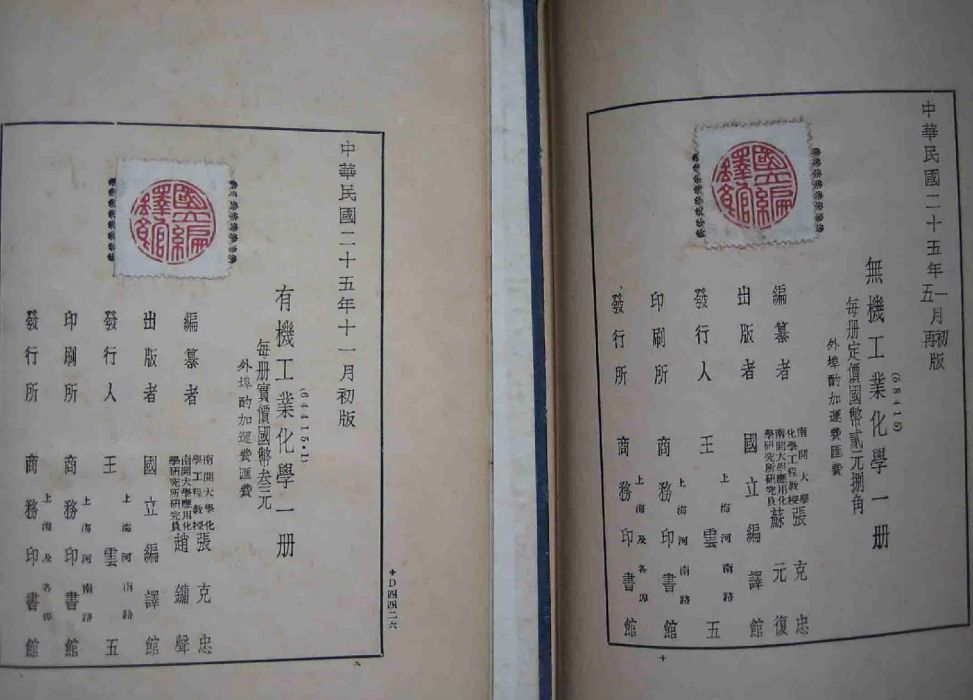 中華民國二十五年一月初版
五 再
無機工業化學一册
(68415)
每册定價國幣貳元捌角
外埠酌加運費匯費
編纂者
南開大學化學工程教授張克忠
南開大學應用化學研究所研究員蘇元復
出版者 國立編譯館
發行人 王雲五
上海河南路
印刷所 商務印書館
上海河南路
發行所 商務印書館
上海及各埠
國立編譯館
十
中華民國二十五年十一月初版
有機工業化學一册
(64415·1)
每册實價國幣叁元
外埠酌加運費匯費
編纂者
南開大學化學工程教授張克忠
南開大學應用化學研究所研究員趙鏞聲
出版者 國立編譯館
發行人 王雲五
上海河南路
印刷所 商務印書館
上海河南路
發行所 商務印書館
上海及各埠
國立編譯館
*D四四二六
九